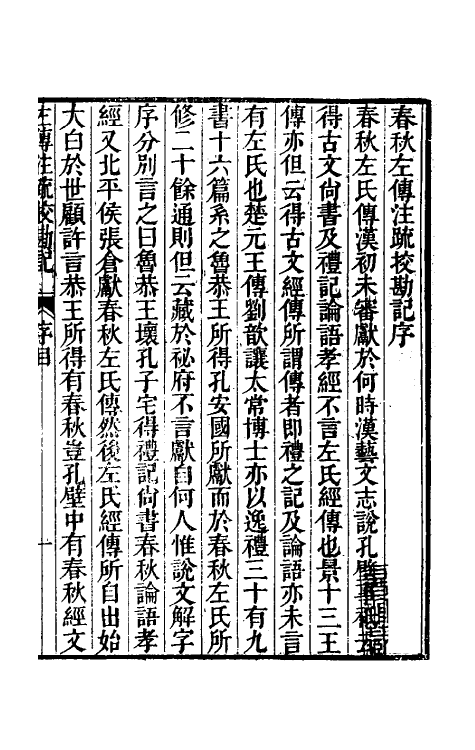 春秋左傳注疏挍勘記序
春秋左氏傳漢初未審獻於何時漢藝文志說孔
得古文尙書及禮記論語孝經不言左氏經傳也景十三王
傳亦但云得古文經傳所謂傳者即禮之記及論語亦未言
有左氏也楚元王傳劉歆讓太常博士亦以逸禮三十有九
書十六篇系之魯恭王所得孔安國所獻而於春秋左氏所
修二十餘通則但云藏於祕府不言獻自何人惟說文解字
序分別言之曰魯恭王壞孔子宅得禮記尙書春秋論語孝
經又北平侯張倉獻春秋左氏傳然後左氏經傳所自出始
大白於世顧許言恭王所得有春秋豈孔壁中有春秋經文
左傳注疏挍勘記 序目 一